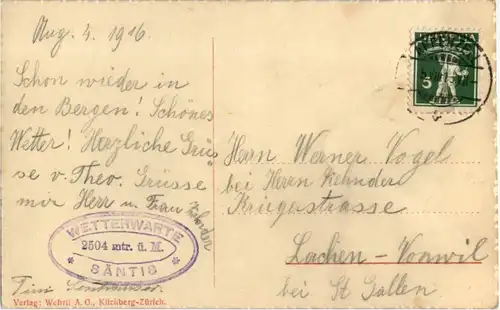 Aug. 4. 1916
Schon wieder in
den Bergen! Schönes
Wetter! Herzliche Grüs-
se v. Theo. Grüsse
mir Herr u. Frau
Kehnder
WETTERWARTE
2504 mtr. ü. M.
SÄNTIS
Verlag: Wehrli A. G., Kilchberg-Zürich.
5
Herrn Werner Vogel
bei Herrn Kehnder
Kriegerstrasse
Lachen-Vonwil
bei St Gallen